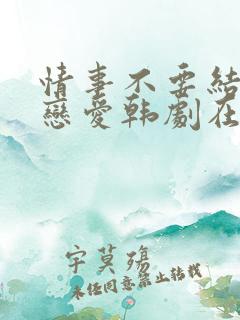 情事不要結
戀愛韩劇在
宇莫殤
未經同意禁止转载